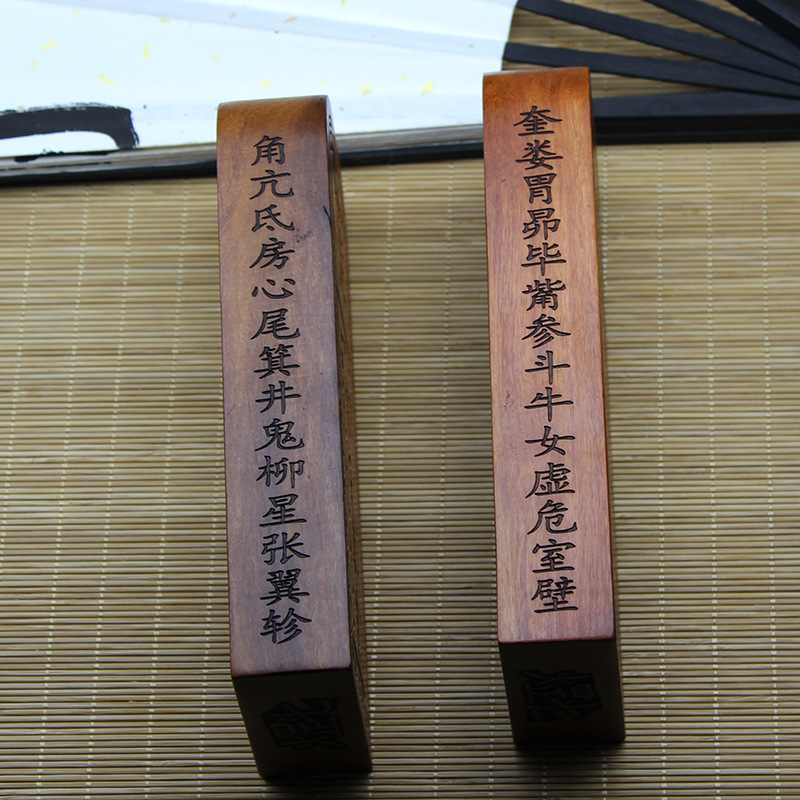 角亢氐房心尾箕井鬼柳星张翼轸
奎娄胃昴毕觜参斗牛女虚危室壁